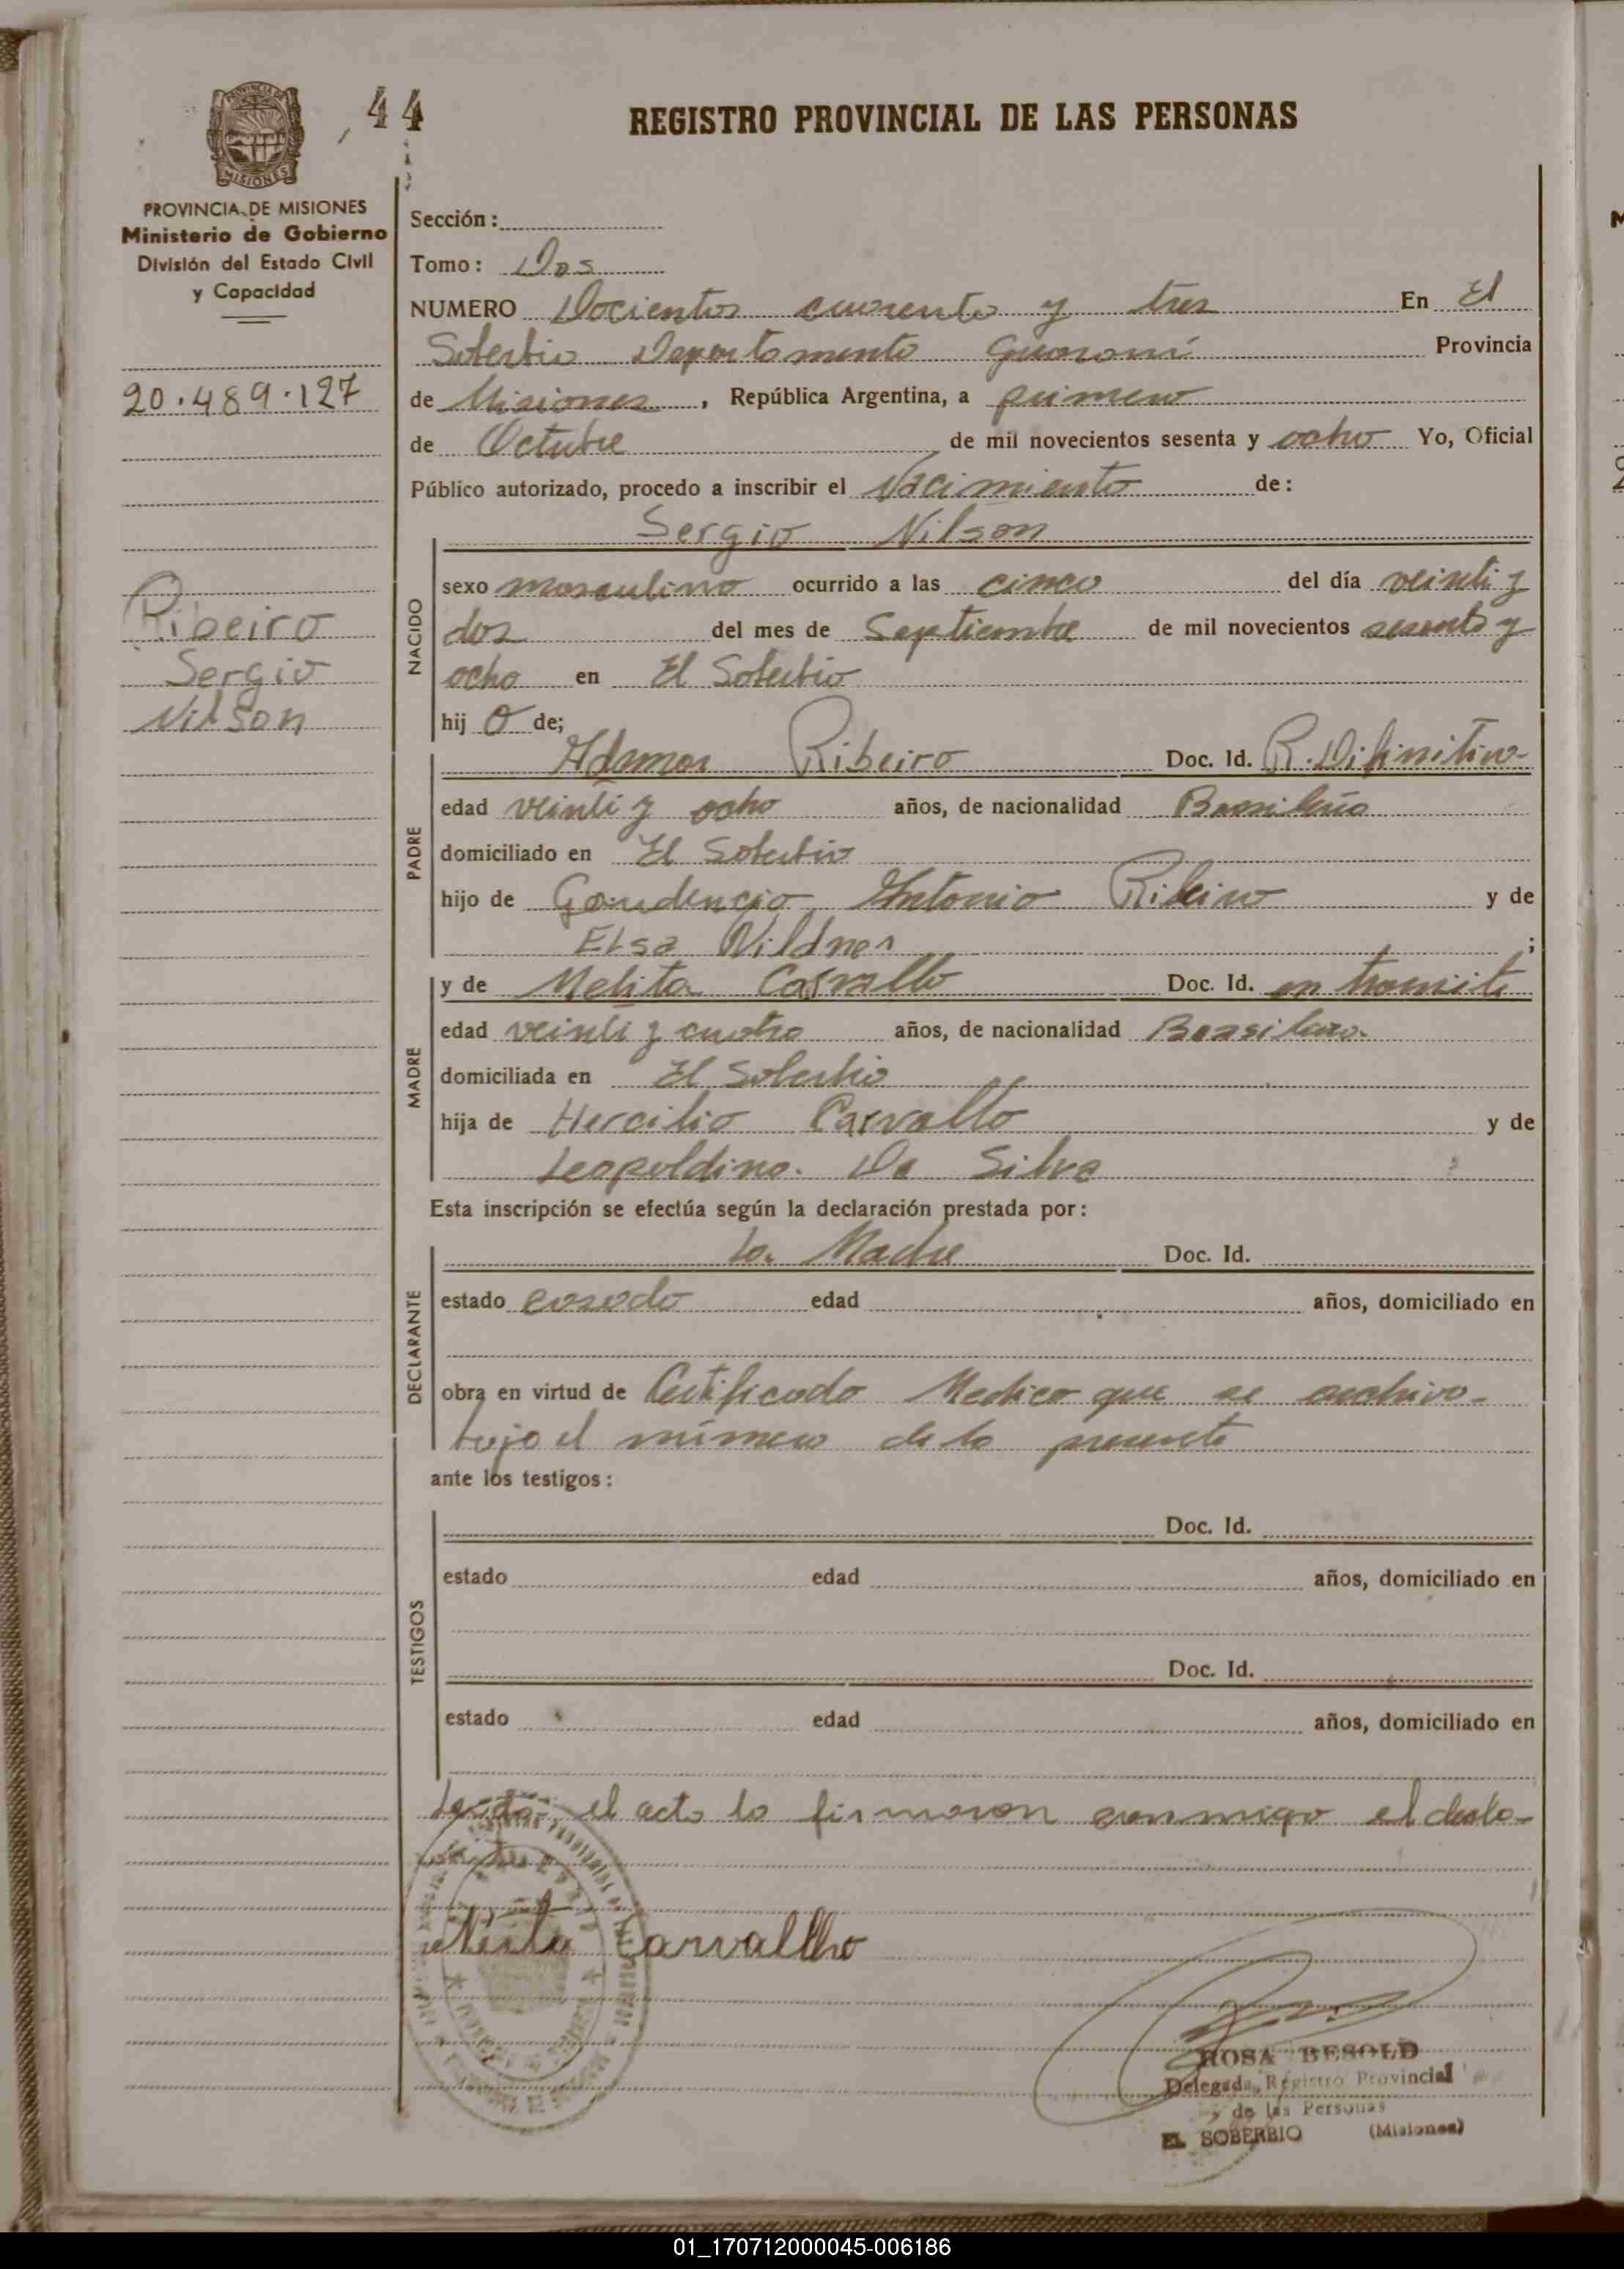 44
REGISTRO PROVINCIAL DE LAS PERSONAS
PROVINCIA DE MISIONES
Ministerio de Gobierno
División del Estado Civil
y Capacidad
20.489.127
Ribeiro
Sergio
Nilson
Sección:
Tomo: Dos
NUMERO Docientos cuarenta y tres En El
Soberbio Departamento Guaraní Provincia
de Misiones, República Argentina, a primero
de Octubre de mil novecientos sesenta y ocho Yo, Oficial
Público autorizado, procedo a inscribir el Nacimiento de:
Sergio Nilson
NACIDO
sexo masculino ocurrido a las cinco del día veinti y
dos del mes de Septiembre de mil novecientos sesenta y
ocho en El Soberbio
hij o de;
PADRE
Ademar Ribeiro Doc. Id. R. Difinitiva
edad veinti y ocho años, de nacionalidad Brasileña
domiciliado en El Soberbio
hijo de Gaudencio Antonio Ribeiro y de
Elsa Wildner ;
MADRE
y de Melita Carvallo Doc. Id. en tramite
edad veinti y cuatro años, de nacionalidad Brasilera
domiciliada en El Soberbio
hija de Hercilio Carvallo y de
Leopoldina Da Silva
Esta inscripción se efectúa según la declaración prestada por:
DECLARANTE
La Madre Doc. Id.
estado casada edad años, domiciliado en
obra en virtud de Certificado Medico que se archiva
bajo el número de la presente
ante los testigos:
TESTIGOS
Doc. Id.
estado edad años, domiciliado en
Doc. Id.
estado edad años, domiciliado en
Leida el acta la firmaron conmigo el decla-
rante
Carvallho
ROSA BESOLD
Delegada Registro Provincial
de las Personas
EL SOBERBIO (Misiones)
01_170712000045-006186